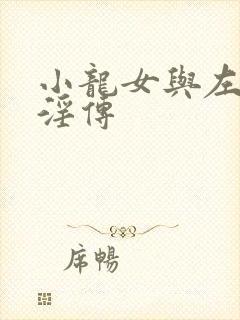 小龍女與左
淫傳
席暢